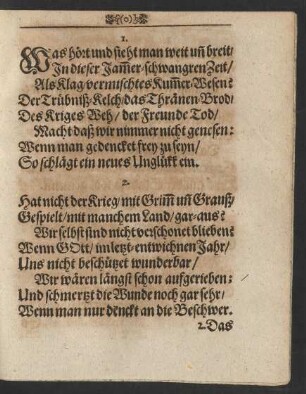 1.
Was hört und sieht man weit uñ breit/
In dieser Jam̃er-schwangren Zeit/
Als Klag/ vermischtes Kum̃er-Wesen?
Der Trübniß-Kelch/ das Thränen-Brod/
Des Kriges Weh/ der Freunde Tod/
Macht daß wir nimmer nicht genesen:
Wenn man gedencket frey zu seyn/
So schlägt ein neues Unglükk ein.
2.
Hat nicht der Krieg/ mit Grim̃ uñ Grauß/
Gespielt/ mit manchem Land/ gar-aus?
Wir selbst sind nicht verschonet blieben:
Wenn GOtt/ im letzt-entwichnen Jahr/
Uns nicht beschützet wunderbar/
Wir wären längst schon aufgerieben:
Und schmertzt die Wunde noch gar sehr/
Wenn man nur denckt an die Beschwer.
2. Das